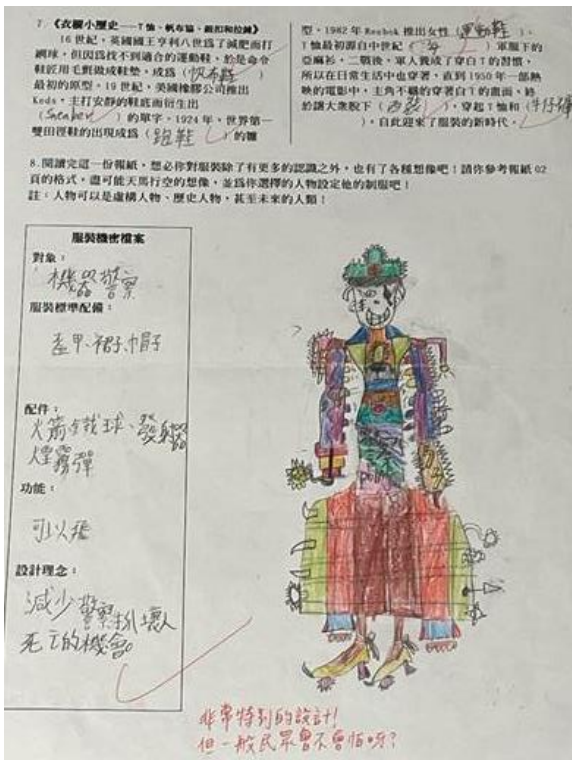 7.《衣櫥小歷史——T恤、帆布鞋、鈕扣和拉鍊》
16世紀,英國國王亨利八世為了減肥而打
網球,但因為找不到適合的運動鞋,於是命令
鞋匠用毛氈做成鞋墊,成為(帆布鞋)
最初的原型。19世紀,美國橡膠公司推出
Keds,主打安靜的鞋底而衍生出
(Sneaker)的單字。1924年,世界第一
雙田徑鞋的出現成為(跑鞋)的雛
型,1982年Reebok推出女性(運動鞋)。
T恤最初源自中世紀()軍服下的
亞麻衫,二戰後,軍人養成了穿白T的習慣,
所以在日常生活中也穿著,直到1950年一部熱
映的電影中,主角不羈的穿著白T的畫面,終
於讓大眾脫下(西裝),穿起T恤和(牛仔褲
),自此迎來了服裝的新時代。
8.閱讀完這一份報紙,想必你對服裝除了有更多的認識之外,也有了各種想像吧!請你參考報紙02
頁的格式,盡可能天馬行空的想像,並為你選擇的人物設定他的制服吧!
註:人物可以是虛構人物、歷史人物,甚至未來的人類!
服裝機密檔案
對象:
機器警察
服裝標準配備:
盔甲、裙子、帽子
配件:
火箭、鐵球、發射器
煙霧彈
功能:
可以飛
設計理念:
減少警察抓壞人
死亡的機會。
非常特別的設計!
但一般民眾會不會怕呀?